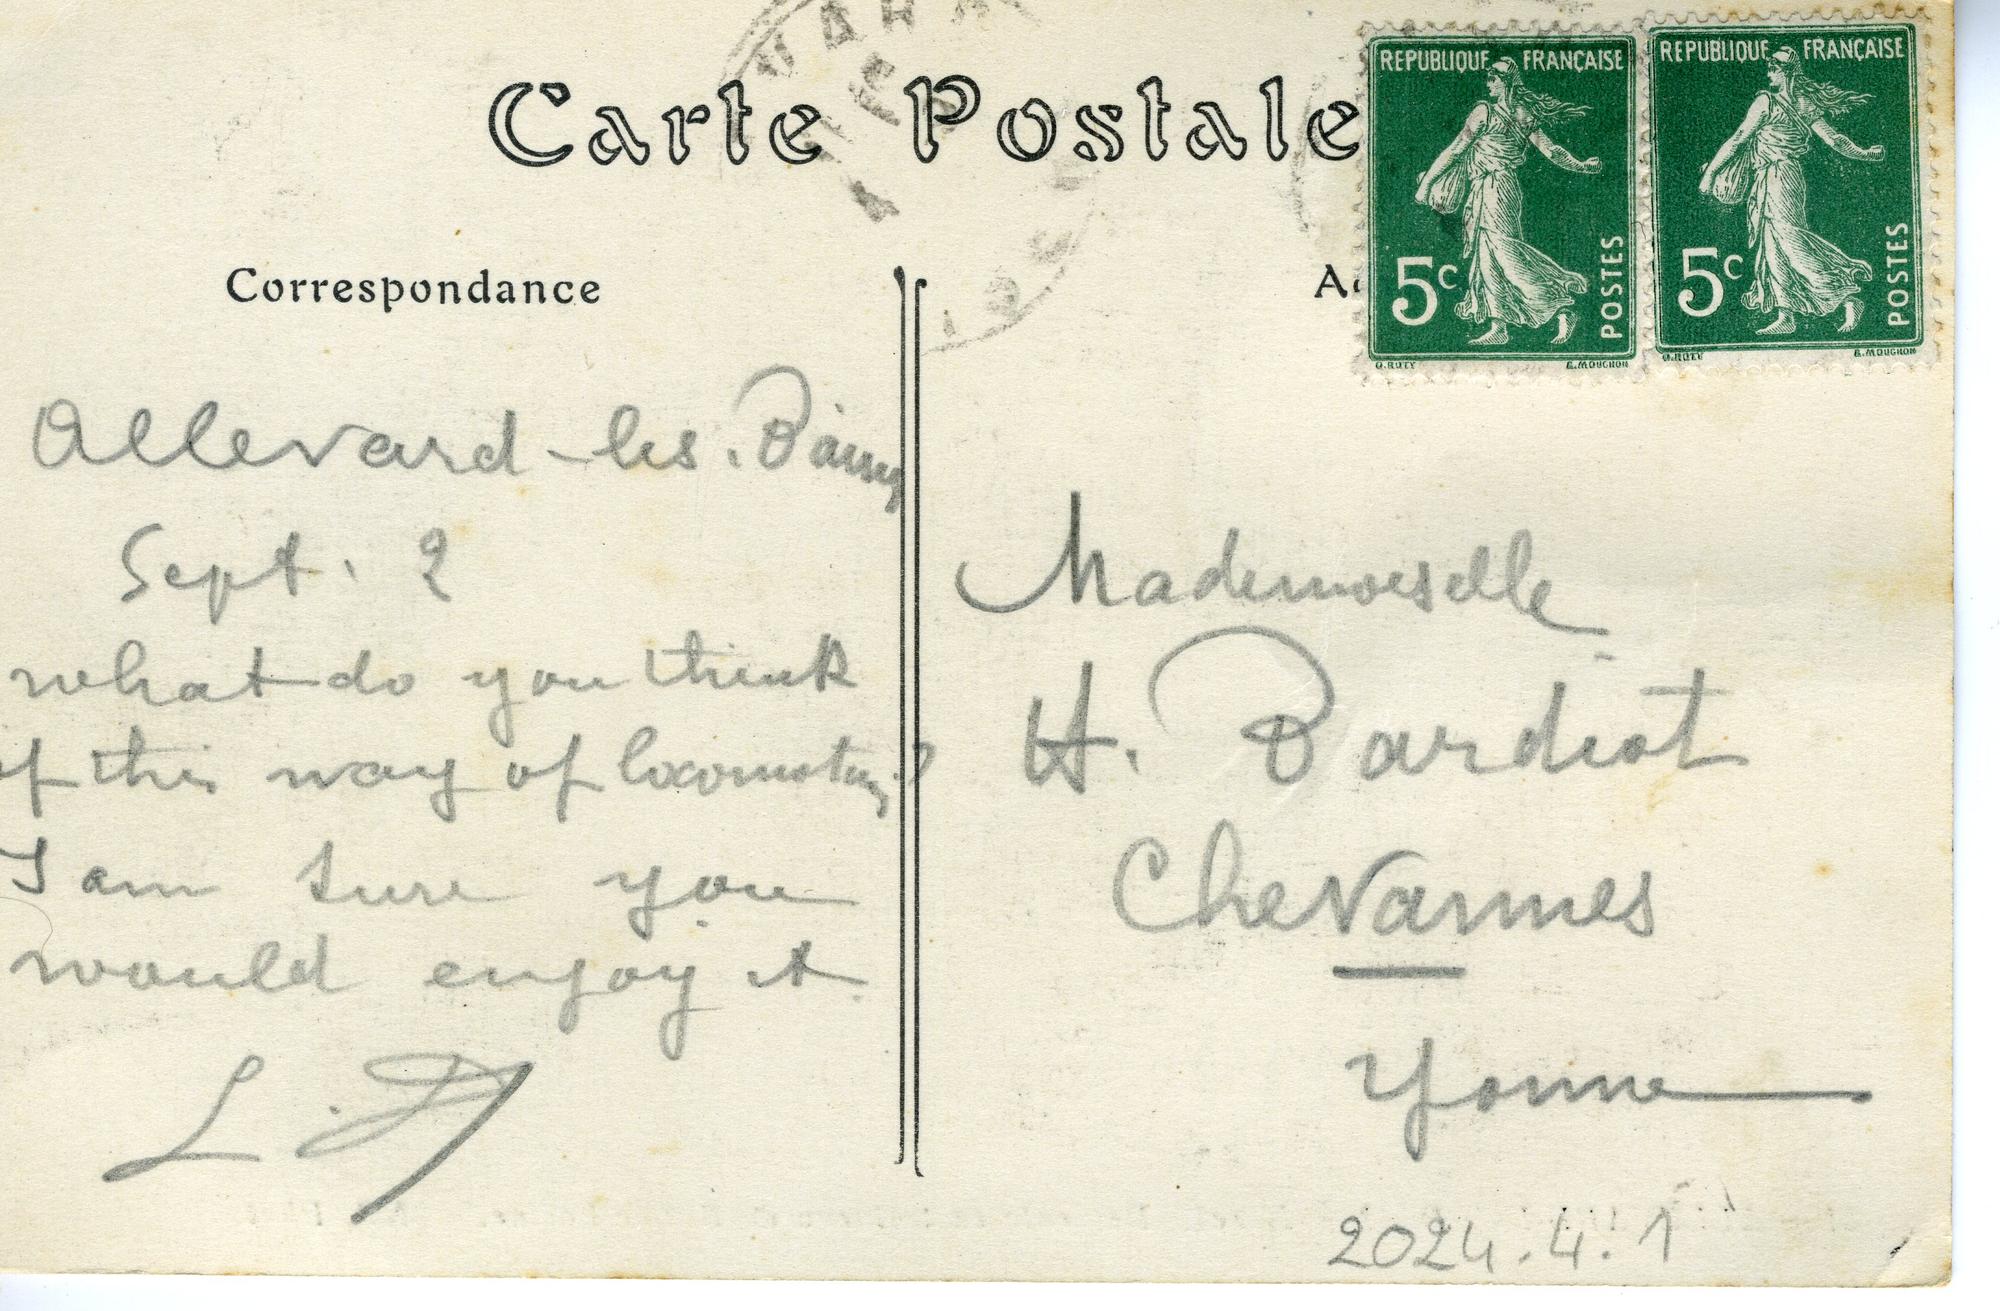 Carte Postale
REPUBLIQUE FRANÇAISE
5c
POSTES
O.ROTY E.MOUCHON
REPUBLIQUE FRANÇAISE
5c
POSTES
O.ROTY E.MOUCHON
Correspondance
Allevard-les-Bains
Sept. 2
what do you think
of this way of locomotion?
I am sure you
would enjoy it.
Mademoiselle
H. Bardiot
Chevannes
Yonne
2024.4.1